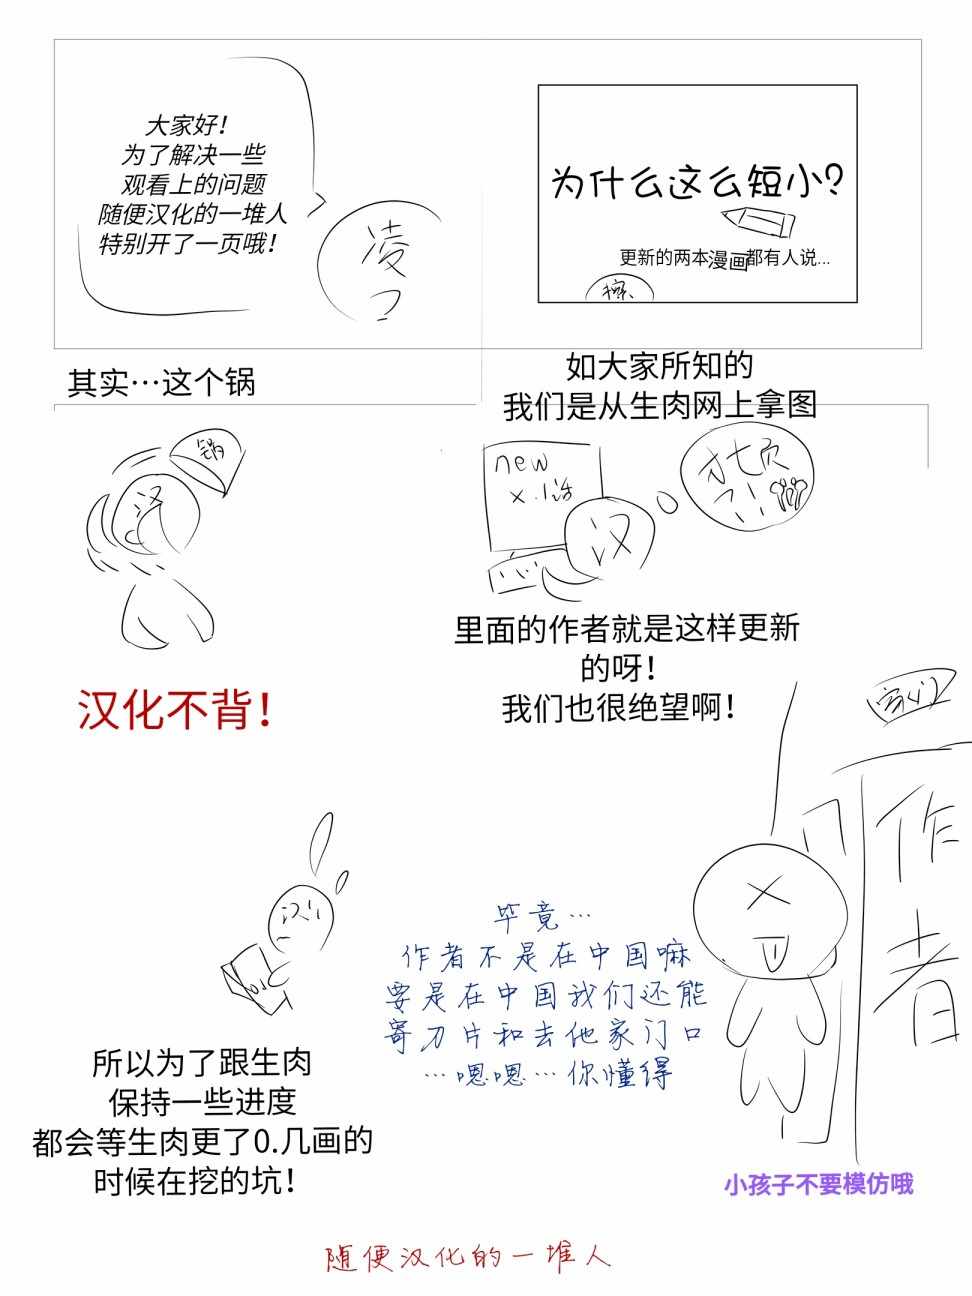 大家好！
为了解决一些
观看上的问题
随便汉化的一堆人
特别开了一页哦！
凌
为什么这么短小？
更新的两本漫画都有人说…
擦、
其实…这个锅
锅
汉
汉化不背！
如大家所知的
我们是从生肉网上拿图
new
x.1话
才七页
汉
里面的作者就是这样更新
的呀！
我们也很绝望啊！
家门
作者
汉
毕竟…
作者不是在中国嘛
要是在中国我们还能
寄刀片和去他家门口
…嗯嗯…你懂得
所以为了跟生肉
保持一些进度
都会等生肉更了0.几画的
时候在挖的坑！
小孩子不要模仿哦
随便汉化的一堆人